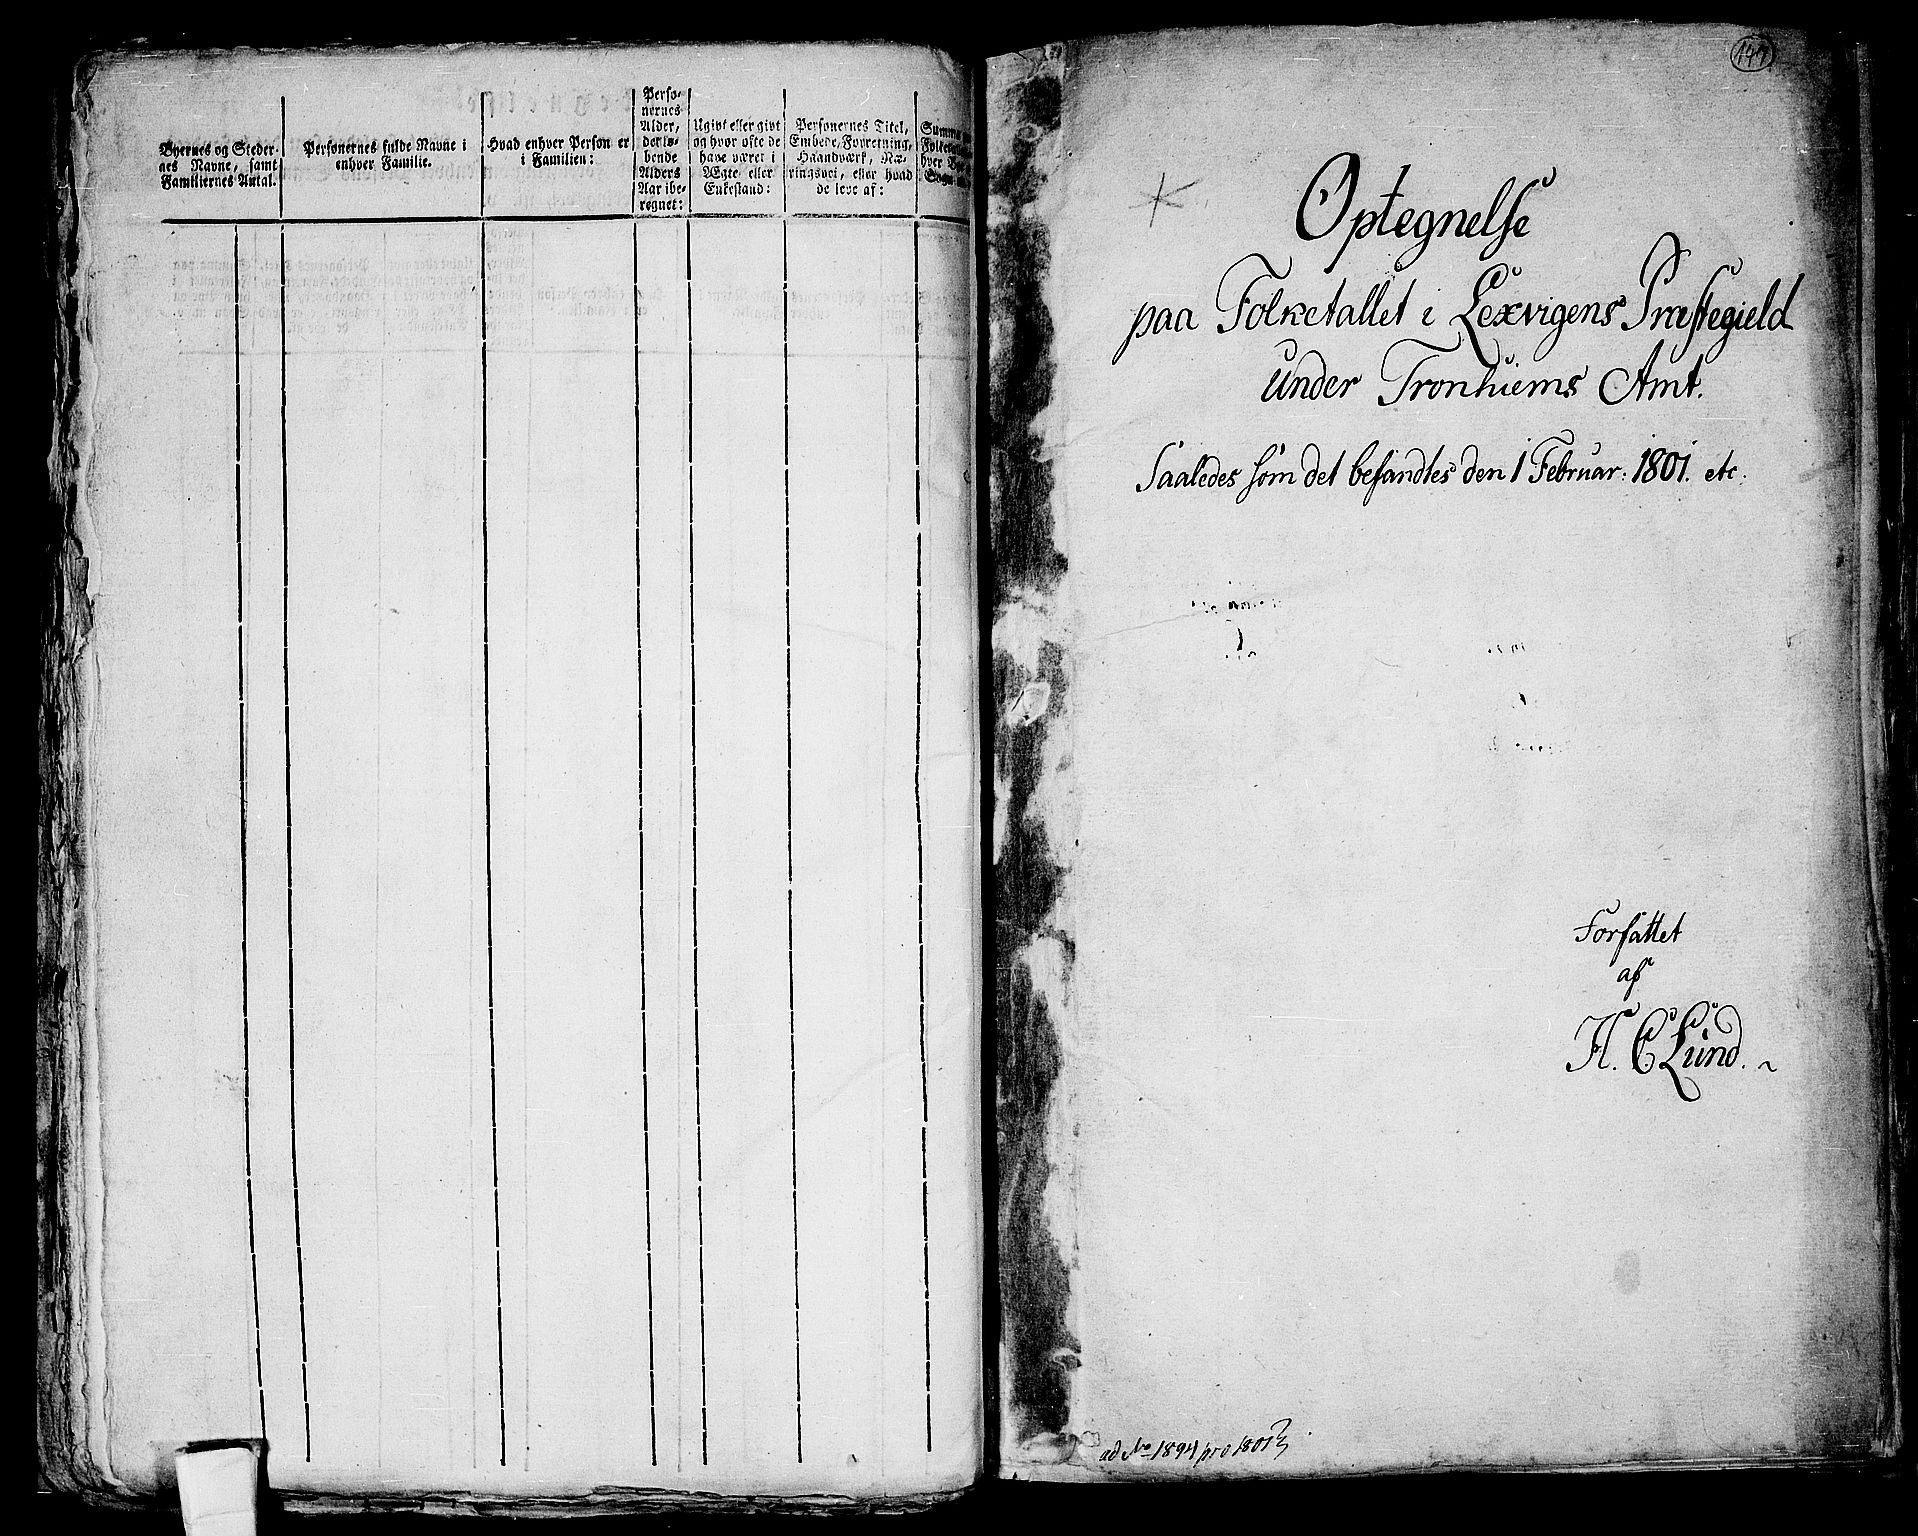 Byernes og Steder-
nes Navne, samt
Familiernes Antal.
Personernes fulde Navne i
enhver Familie.
Hvad enhver Person er
i Familien:
Perso-
nernes
Alder,
det lø-
bende
Alders
Aar ibe-
regnet:
Ugivt eller givt
og hvor ofte de
have været i
Ægte eller
Enkestand:
Personernes Titel,
Embede, Forretning,
Haandværk, Næ-
ringsvei, eller hvad
de leve af:
Summa
hver
Sogn
Optegnelse
paa Folketallet i Lexvigens Præstegield
under Tronhiems Amt.
Saaledes som det befandtes den 1 Februar: 1801. etc.
Forfattet
af
H. C Lund.
ad No 1894 pro 1801